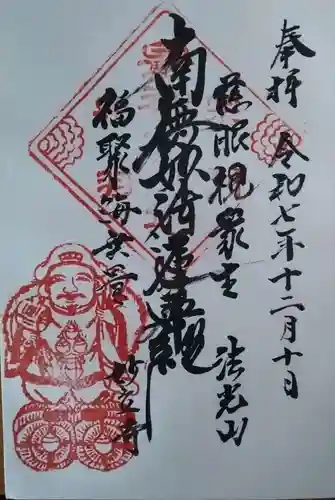 奉拝 令和七年十二月十日
慈眼視衆生 法光山
南無妙法蓮華経
福聚海無量 妙立寺